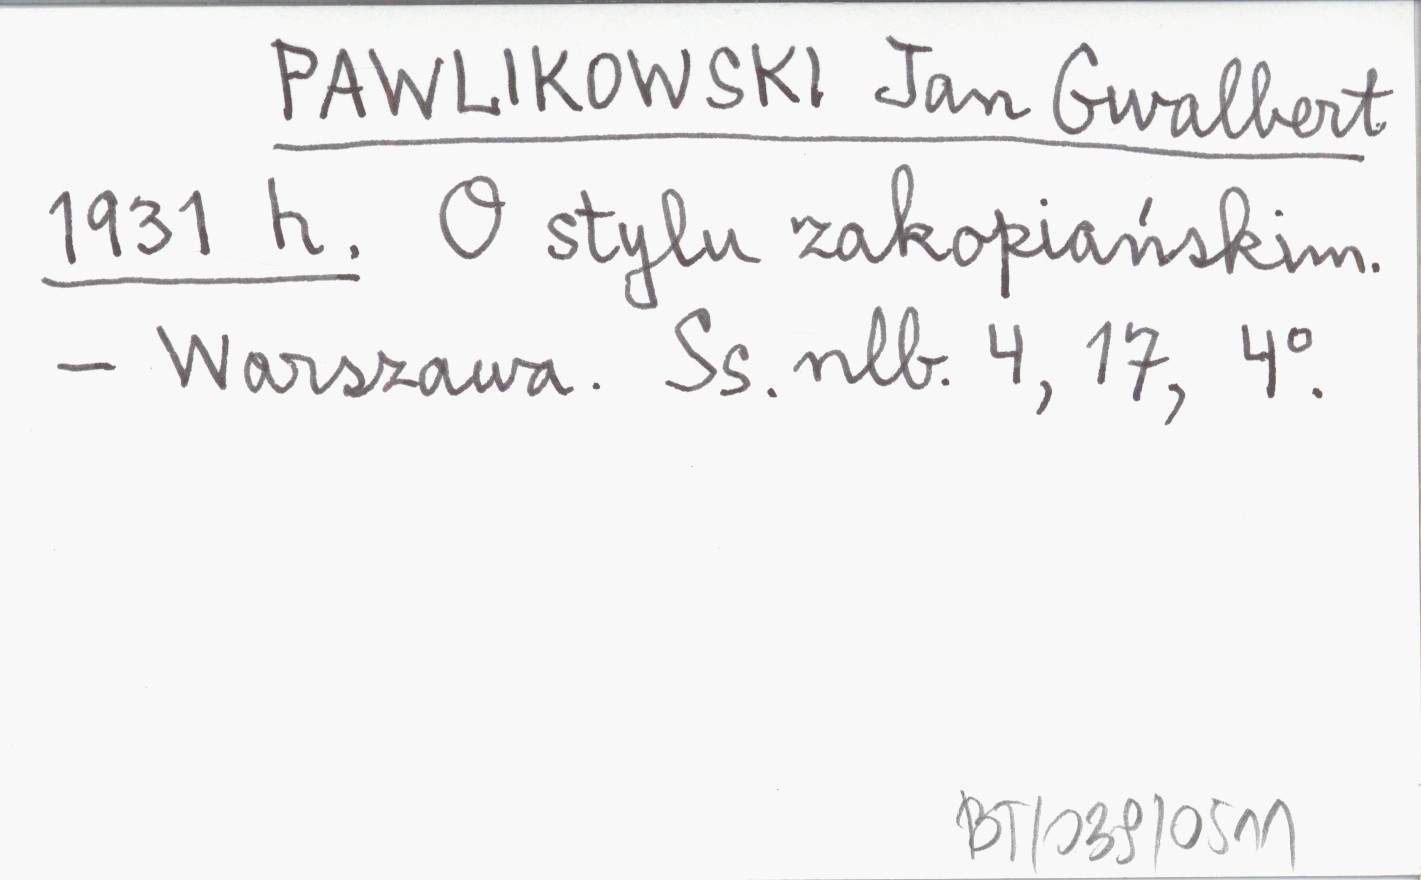 PAWLIKOWSKI Jan Gwalbert
1931 h. O stylu zakopiańskim.
— Warszawa. Ss. nlb. 4, 17, 4°.
BT/039/0511